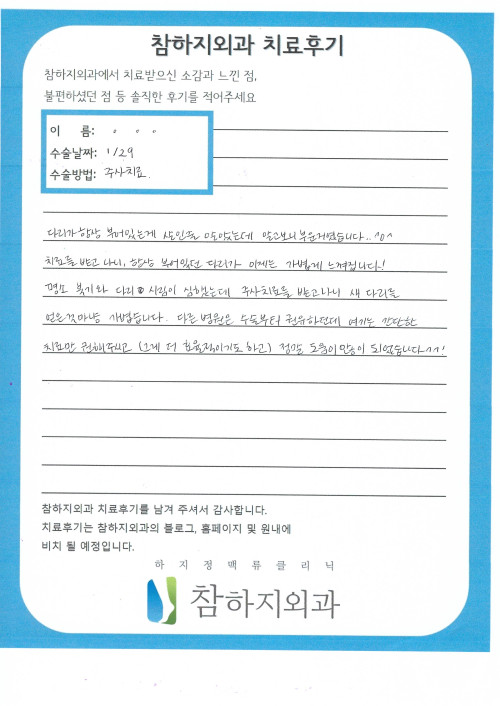 참하지외과 치료후기
참하지외과에서 치료받으신 소감과 느낀 점,
불편하셨던 점 등 솔직한 후기를 적어주세요
이 름: o o o
수술날짜: 1/29
수술방법: 주사치료.
다리가 항상 부어있는게 살인줄 알았는데 알고보니 부은거였습니다.. ^o^
치료를 받고 나니, 항상 부어있던 다리가 이제는 가볍게 느껴집니다!
평소 붓기와 다리 시림이 심했는데 주사치료를 받고나니 새 다리를
얻은것마냥 가볍습니다. 다른 병원은 수술부터 권유하던데 여기는 간단한
치료만 권해주시고 (그게 더 효율적이기도 하고) 정말 도움이 많이 되었습니다^^!
참하지외과 치료후기를 남겨 주셔서 감사합니다.
치료후기는 참하지외과의 블로그, 홈페이지 및 원내에
비치 될 예정입니다.
하지정맥류클리닉
참하지외과